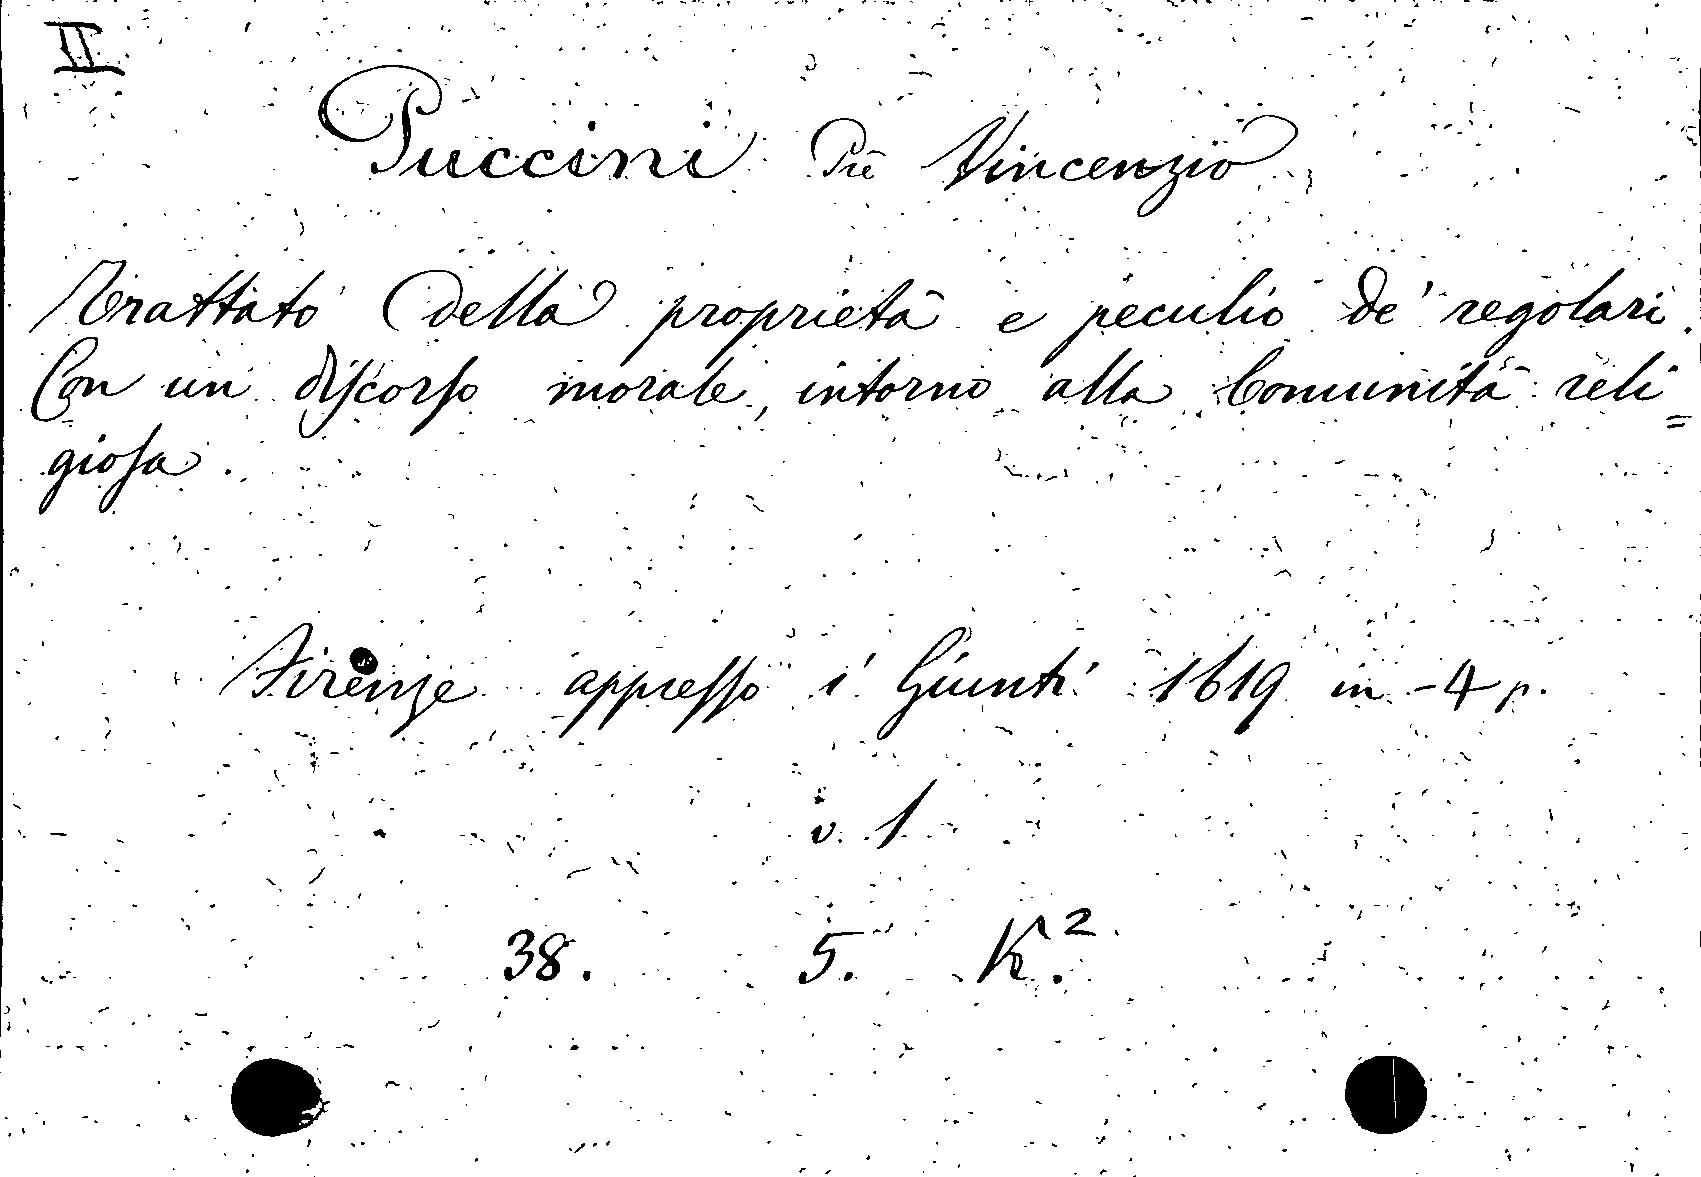 II
Puccini Pre Vincenzio
Trattato della proprietà e peculio de' regolari.
Con un discorso morale, intorno alla Comunità reli=
giosa.
Firenze appresso i Giunti 1619 in-4 p.
v. 1
38. 5. K.²